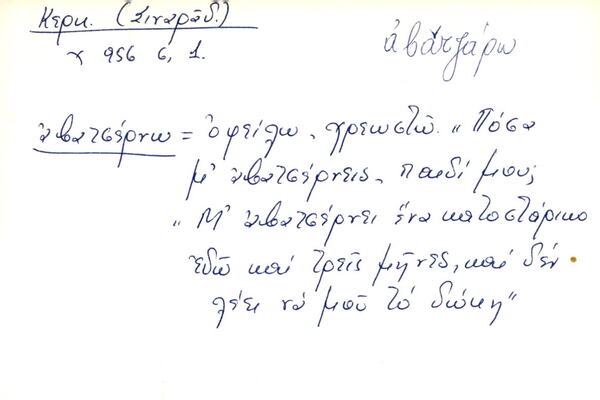 Κερκ. (Σιναρᾶδ.)
χ 956 6, 1.
ἀβατζάρω
ἀβατσέρνω = ὀφείλω, χρεωστῶ. „Πόσα
μ' ἀβατσέρνεις, παιδί μου;
„Μ' ἀβατσέρνει ἕνα κατοστάρικο
ἐδῶ καί τρεῖς μῆνες, καί δέν
λέει νά μοῦ τό δώκη"